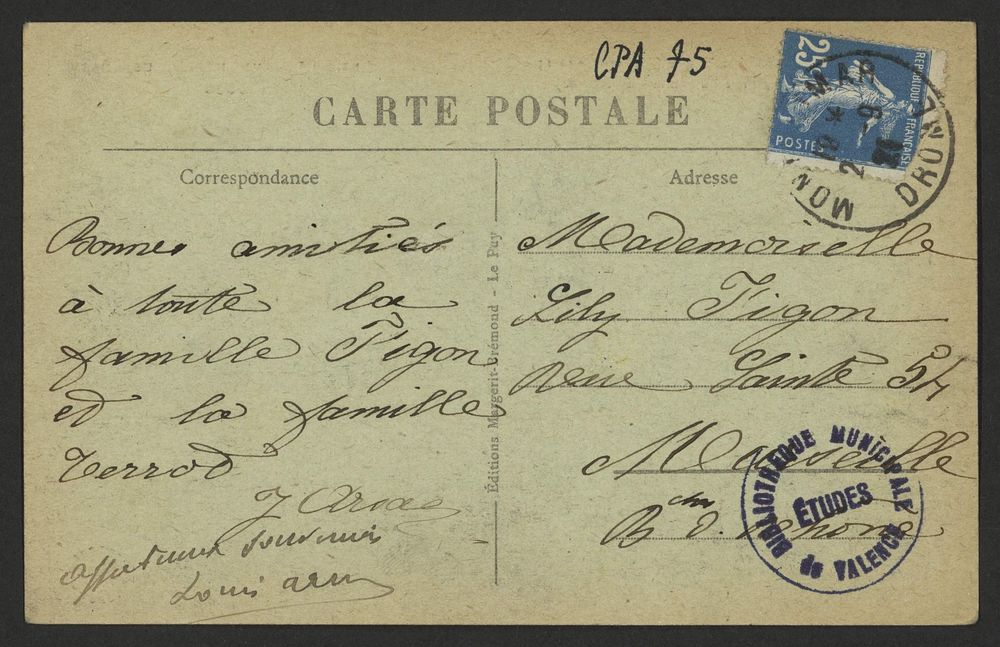 CPA 75
CARTE POSTALE
25
REPUBLIQUE FRANÇAISE
POSTES
DROME
Correspondance
Bonnes amitiés
à toute la
famille Figon
et la famille
Terrod
Affectueux souvenirs
Louis
Éditions Margerit-Brémond - Le Puy
Adresse
Mademoiselle
Lily Figon
rue Sainte 54
Marseille
Bches d. Rhone
BIBLIOTHEQUE MUNICIPALE
ÉTUDES
de VALENCE